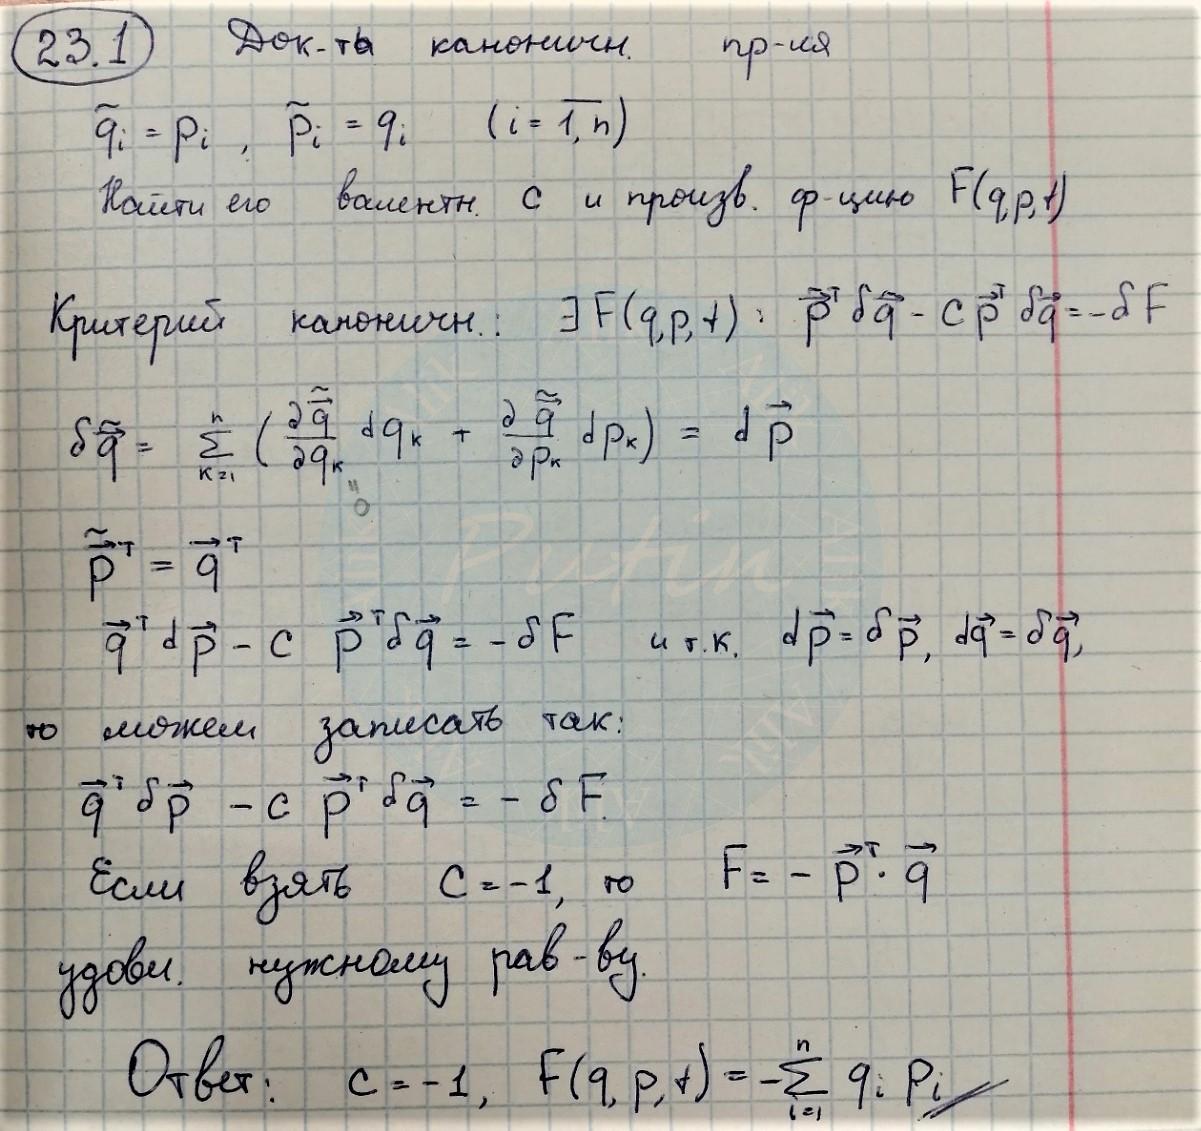 23.1 Док-ть каноничн. пр-ия
q̃ᵢ = pᵢ , p̃ᵢ = qᵢ (i = 1,n)
Найти его валентн. c и произв. ф-цию F(q,p,t)
Критерий каноничн.: ∃F(q,p,t): p̃⃗ᵀ δq̃⃗ - c p⃗ᵀ δq⃗ = -δF
δq̃⃗ = Σₖ₌₁ⁿ (∂q̃⃗/∂qₖ dqₖ + ∂q̃⃗/∂pₖ dpₖ) = dp⃗
"0
p̃⃗ᵀ = q⃗ᵀ
q⃗ᵀ dp⃗ - c p⃗ᵀ δq⃗ = -δF и т.к. dp⃗ = δp⃗, dq⃗ = δq⃗,
то можем записать так:
q⃗ᵀ δp⃗ - c p⃗ᵀ δq⃗ = - δF.
Если взять c = -1, то F = - p⃗ᵀ · q⃗
удовл. нужному рав-ву.
Ответ: c = -1, F(q,p,t) = -Σᵢ₌₁ⁿ qᵢ pᵢ
Putin